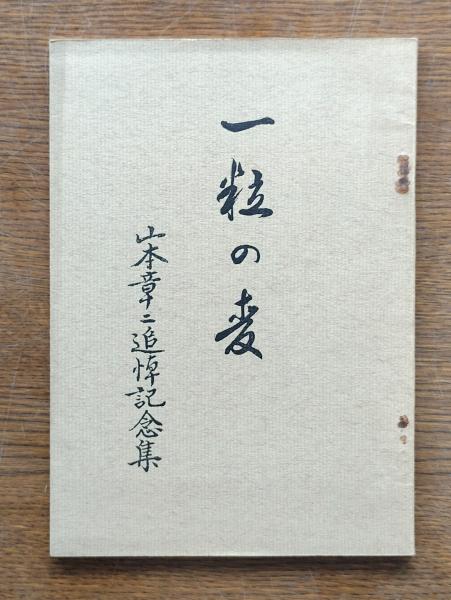 一粒の麦
山本章二追悼記念集